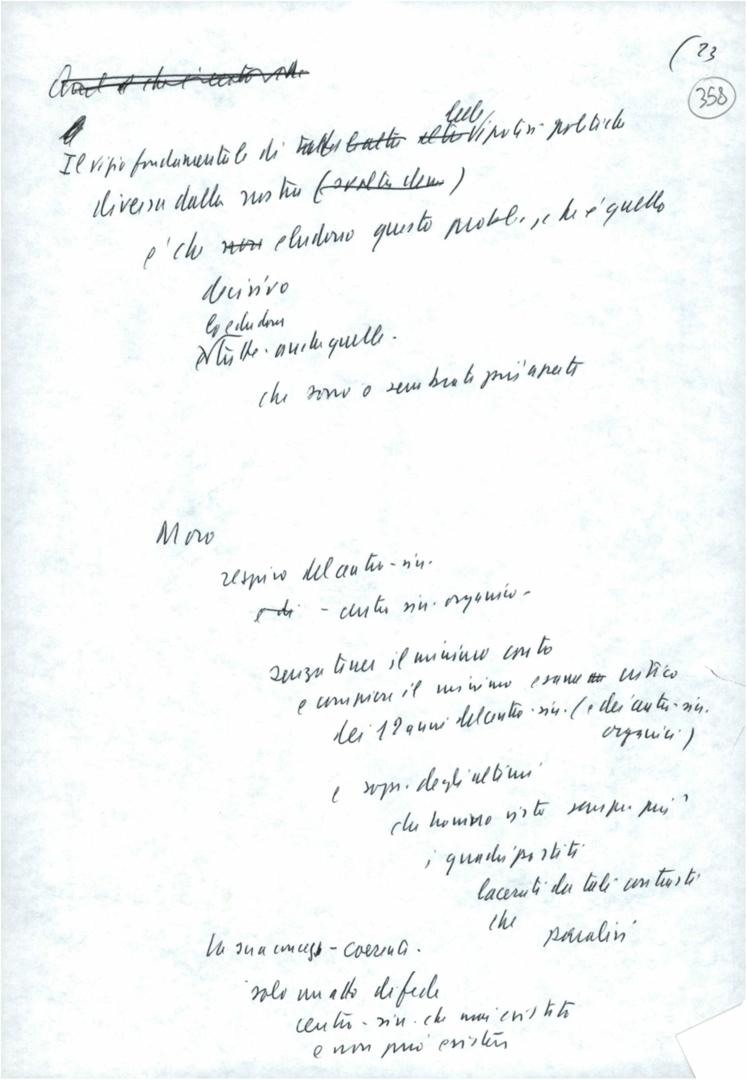 (23
358
Il vizio fondamentale di tutte le altre ipotesi politiche
diversa dalla nostra (svolta dem)
è che non eludono questo probl., che è quello
decisivo
lo eludono
tutte. anche quelle.
che sono o sembrate più aperte
Moro
respiro del centro-sin.
e di - centro sin. organico -
senza tener il minimo conto
e compiere il minimo esame critico
dei 12 anni del centro-sin. (e dei centro-sin.
organici)
e sopr. degli ultimi
che hanno visto sempre più
i quadripartiti
lacerati da tali contrasti
che paralisi
la sua - coerenti.
solo un atto di fede
centro-sin. che mai esistito
e non può esistere